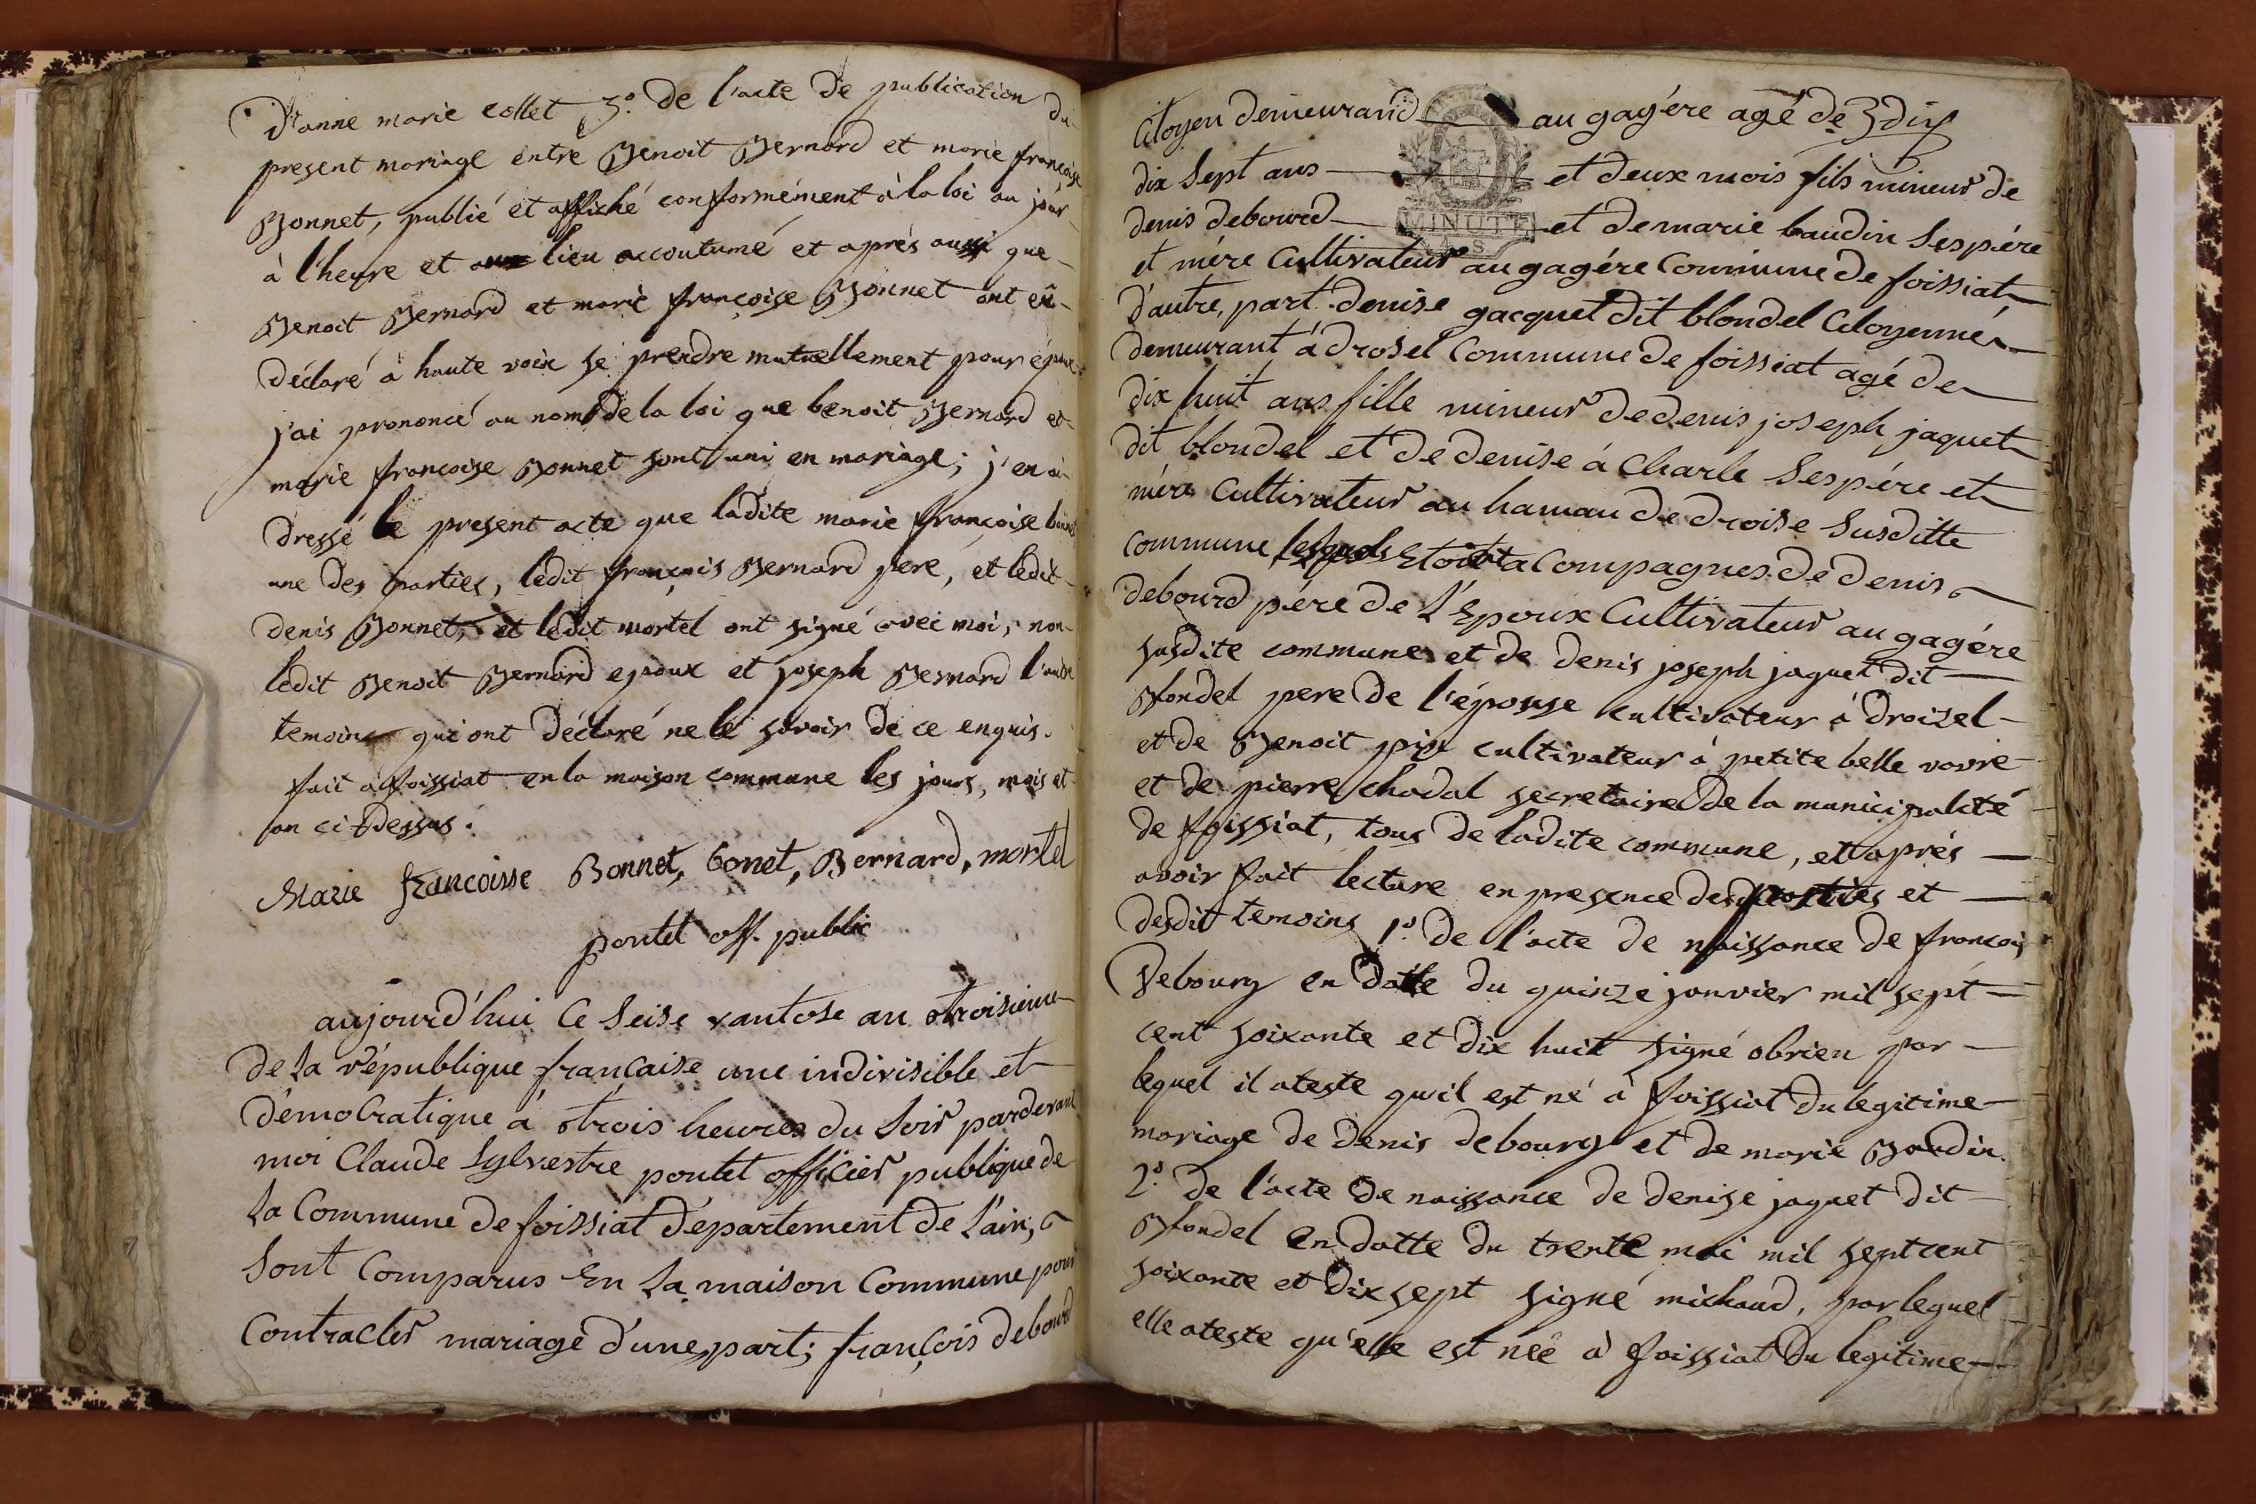 d'anne marie collet 3º. de l'acte de publication du
present mariage entre Benoit Bernard et marie françoise
Bonnet, publié et affiché conformément à la loi au jour
à l'heure et lieu accoutumé et après aussi que
Benoit Bernard et marie françoise Bonnet ont eû
déclaré à haute voix se prendre mutuellement pour époux
j'ai prononcé au nom de la loi que benoit Bernard et
marie francoise Bonnet sont uni en mariage; j'en ai
dressé le present acte que ladite marie françoise bonnet
une des parties, ledit françois Bernard pere, et ledit
denis Bonnet, et ledit mortel ont signé avec moi, non
ledit Benoit Bernard epoux et joseph Bernard l'oncle
temoins qui ont déclaré ne le savoir de ce enquis.
fait à foissiat en la maison commune les jours, mois et
an ci-dessus.
Marie francoisse Bonnet, bonet, Bernard, mortel
poutel off. public
aujourd'hui ce seise vantose an troisieme
de la république française une indivisible et
démocratique à trois heures du soir pardevant
moi Claude Sylvestre poutet officier publique de
la Commune de foissiat département de l'ain,
sont Comparus En la maison Commune pour
Contracter mariage d'une part; françois debourd
Citoyen demeurand au gagére agé de
dix sept ans et deux mois fils mineur de
denis debourd et de marie baudin ses pére
MINUTE
et mére Cultivateur au gagére Commune de foissiat
d'autre, part denise gacquet dit blondel Citoyenne
demeurant à drosel Commune de foissiat agé de
dix huit ans fille mineur de denis joseph jaquet
dit blondel et de denise à Charle ses pére et
mére Cultivateur au hamau de droise susditte
commune acompagnes de denis
debourd pére de l'Epoux Cultivateur au gagére
susdite commune et de denis joseph jaquet dit
Blondel pere de l'épouse cultivateur à droizel
et de Benoit pix cultivateur à petite belle vavre
et de pierre chadal secretaire de la municipalité
de foissiat, tous de ladite commune, et après
avoir fait lecture en presence des parties et
desdit temoins 1º. de l'acte de naissance de francois
Debourg en datte du quinze janvier mil sept
cent soixante et dix huit signé obrien par
lequel il ateste qu'il est né à foissiat du legitime
mariage de denis debourg et de marie Baudin.
2º. de l'acte de naissance de denise jaquet dit
Blondel en datte du trente mai mil sept cent
soixante et dix sept signé michaud, par lequel
elle ateste qu'elle est née à foissiat du legitime